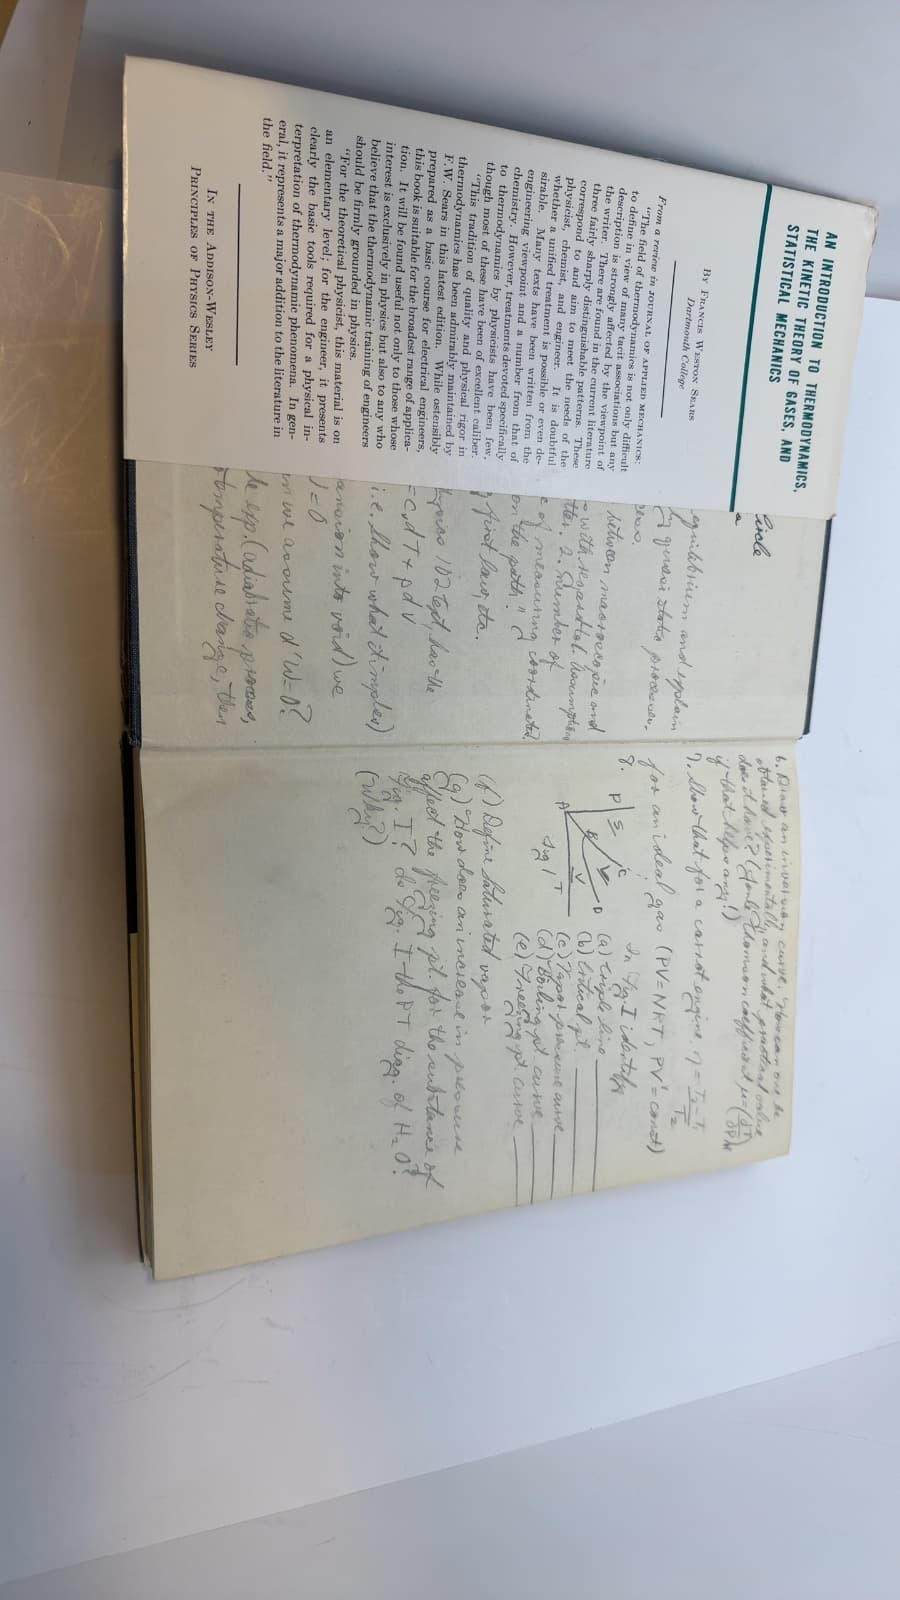 AN INTRODUCTION TO THERMODYNAMICS,
THE KINETIC THEORY OF GASES, AND
STATISTICAL MECHANICS
BY FRANCIS WESTON SEARS
Dartmouth College
From a review in JOURNAL OF APPLIED MECHANICS:
"The field of thermodynamics is not only difficult
to define in view of many tacit associations but any
description is strongly affected by the viewpoint of
the writer. There are found in the current literature
three fairly sharply distinguishable patterns. These
correspond to and aim to meet the needs of the
physicist, chemist, and engineer. It is doubtful
whether a unified treatment is possible or even de-
sirable. Many texts have been written from the
engineering viewpoint and a number from that of
chemistry. However, treatments devoted specifically
to thermodynamics by physicists have been few,
though most of these have been of excellent caliber.
"This tradition of quality and physical rigor in
thermodynamics has been admirably maintained by
F. W. Sears in this latest edition. While ostensibly
prepared as a basic course for electrical engineers,
this book is suitable for the broadest range of applica-
tion. It will be found useful not only to those whose
interest is exclusively in physics but also to any who
believe that the thermodynamic training of engineers
should be firmly grounded in physics.
"For the theoretical physicist, this material is on
an elementary level; for the engineer, it presents
clearly the basic tools required for a physical in-
terpretation of thermodynamic phenomena. In gen-
eral, it represents a major addition to the literature in
the field."
IN THE ADDISON-WESLEY
PRINCIPLES OF PHYSICS SERIES
equilibrium and explain
quasi static processes.
between macroscopic and
with regard to 1. Assumptions
2. Number of
of measuring coordinates.
on the path."
first law, etc.
102 Text, has the
= cvdT + pdV
i.e. show what it implies)
ansion into void) we
= 0
we assume d'W=0?
exp. (adiabatic process,
temperature change, then
6. Draw an inversion curve. How can one be
obtained experimentally, and what practical value
does it have? (Joule Thomson coefficient μ=(∂T/∂P)H
if that helps any!)
7. Show that for a carnot engine, η = T2-T1/T2
for an ideal gas (PV=NKT, PV^γ=const)
8.
P
S
L
C
V
D
A
T
fig 1
In fig. I identify
(a) triple line
(b) Critical pt.
(c) Vapor pressure curve
(d) Boiling pt. curve
(e) Freezing pt. curve
(f) Define Saturated vapor
(g) How does an increase in pressure
affect the freezing pt. for the substance of
fig. I? Is fig. I the PT diag. of H2O?
(Why?)